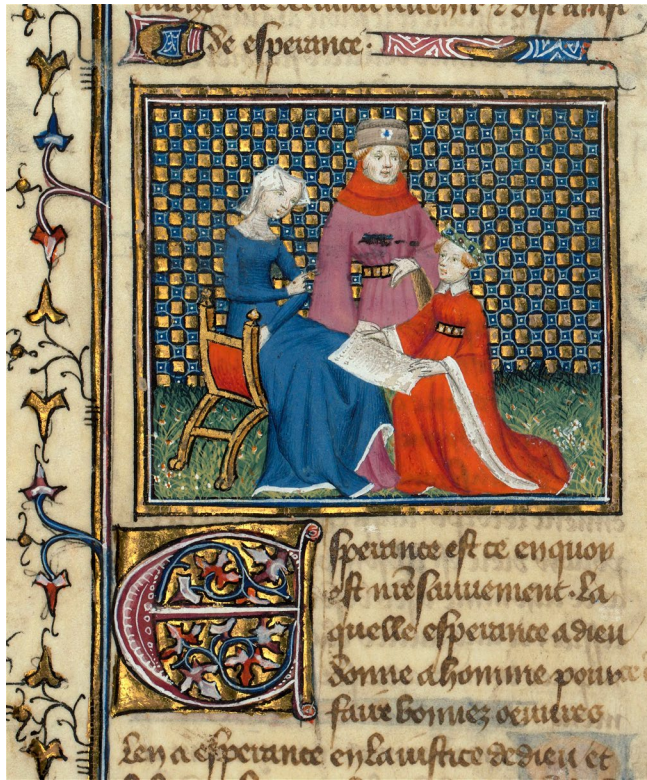 de esperance.
Esperance est ce en quoy
est nr̄e sauuement. La
quelle esperance a dieu
donne a homme pour
faire bonnez oeuures
Len a esperance en la iustice de dieu et